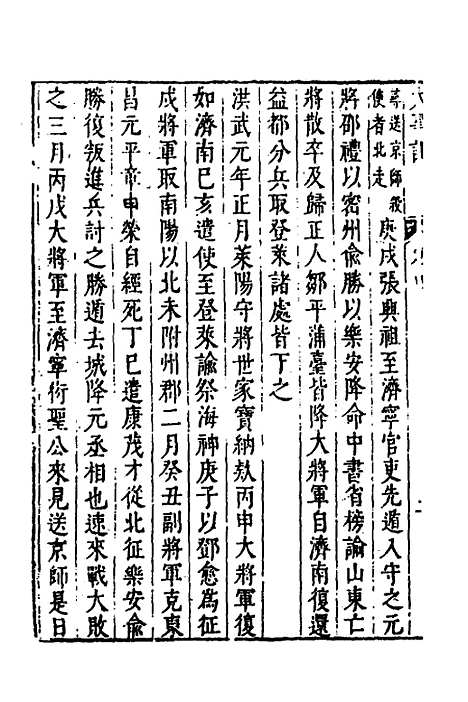 尋送京師殺
使者北走
庚戌張興祖至濟寧官吏先遁入守之元
將邵禮以密州俞勝以樂安降命中書省榜諭山東亡
將散卒及歸正人鄒平蒲臺皆降大將軍自濟南復還
益都分兵取登萊諸處皆下之
洪武元年正月萊陽守將世家寶納欵丙申大將軍復
如濟南巳亥遣使至登萊諭祭海神庚子以鄧愈爲征
戍將軍取南陽以北未附州郡二月癸丑副將軍克東
昌元平章申榮自經死丁巳遣康茂才從北征樂安俞
勝復叛進兵討之勝遁去城降元丞相也速來戰大敗
之三月丙戌大將軍至濟寧衍聖公來見送京師是日